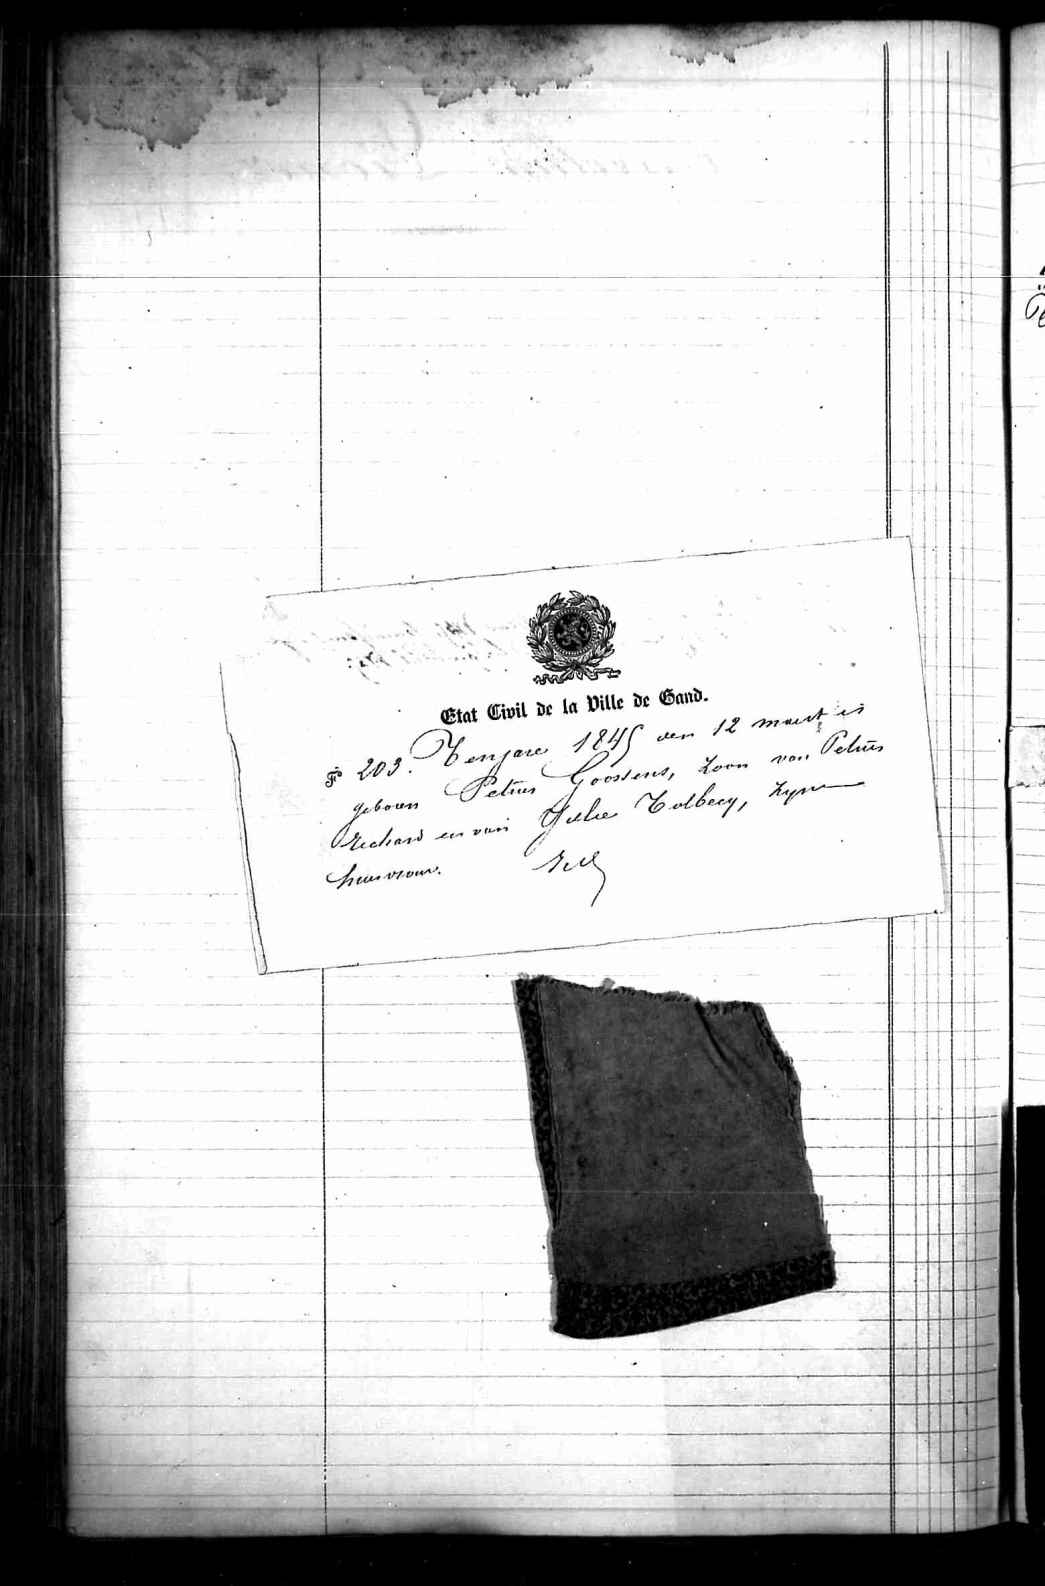 Etat Civil de la Ville de Gand.
F° 203. Ten jare 1845 den 12 maert is
geboren Petrus Goossens, zoon van Petrus
Richard en van Julie Tolbecq, zyne
huisvrouw.